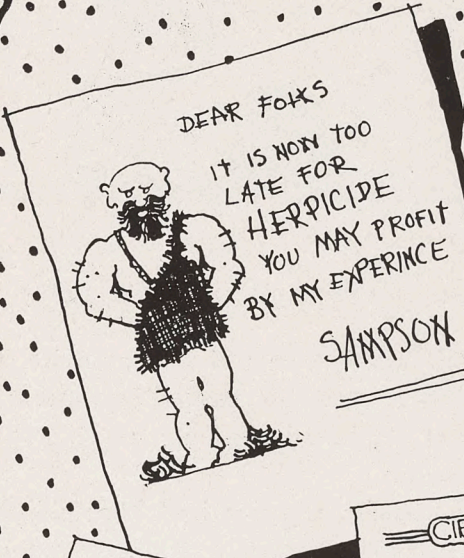 DEAR FOLKS
IT IS NOW TOO
LATE FOR
HERPICIDE
YOU MAY PROFIT
BY MY EXPERINCE
SAMPSON